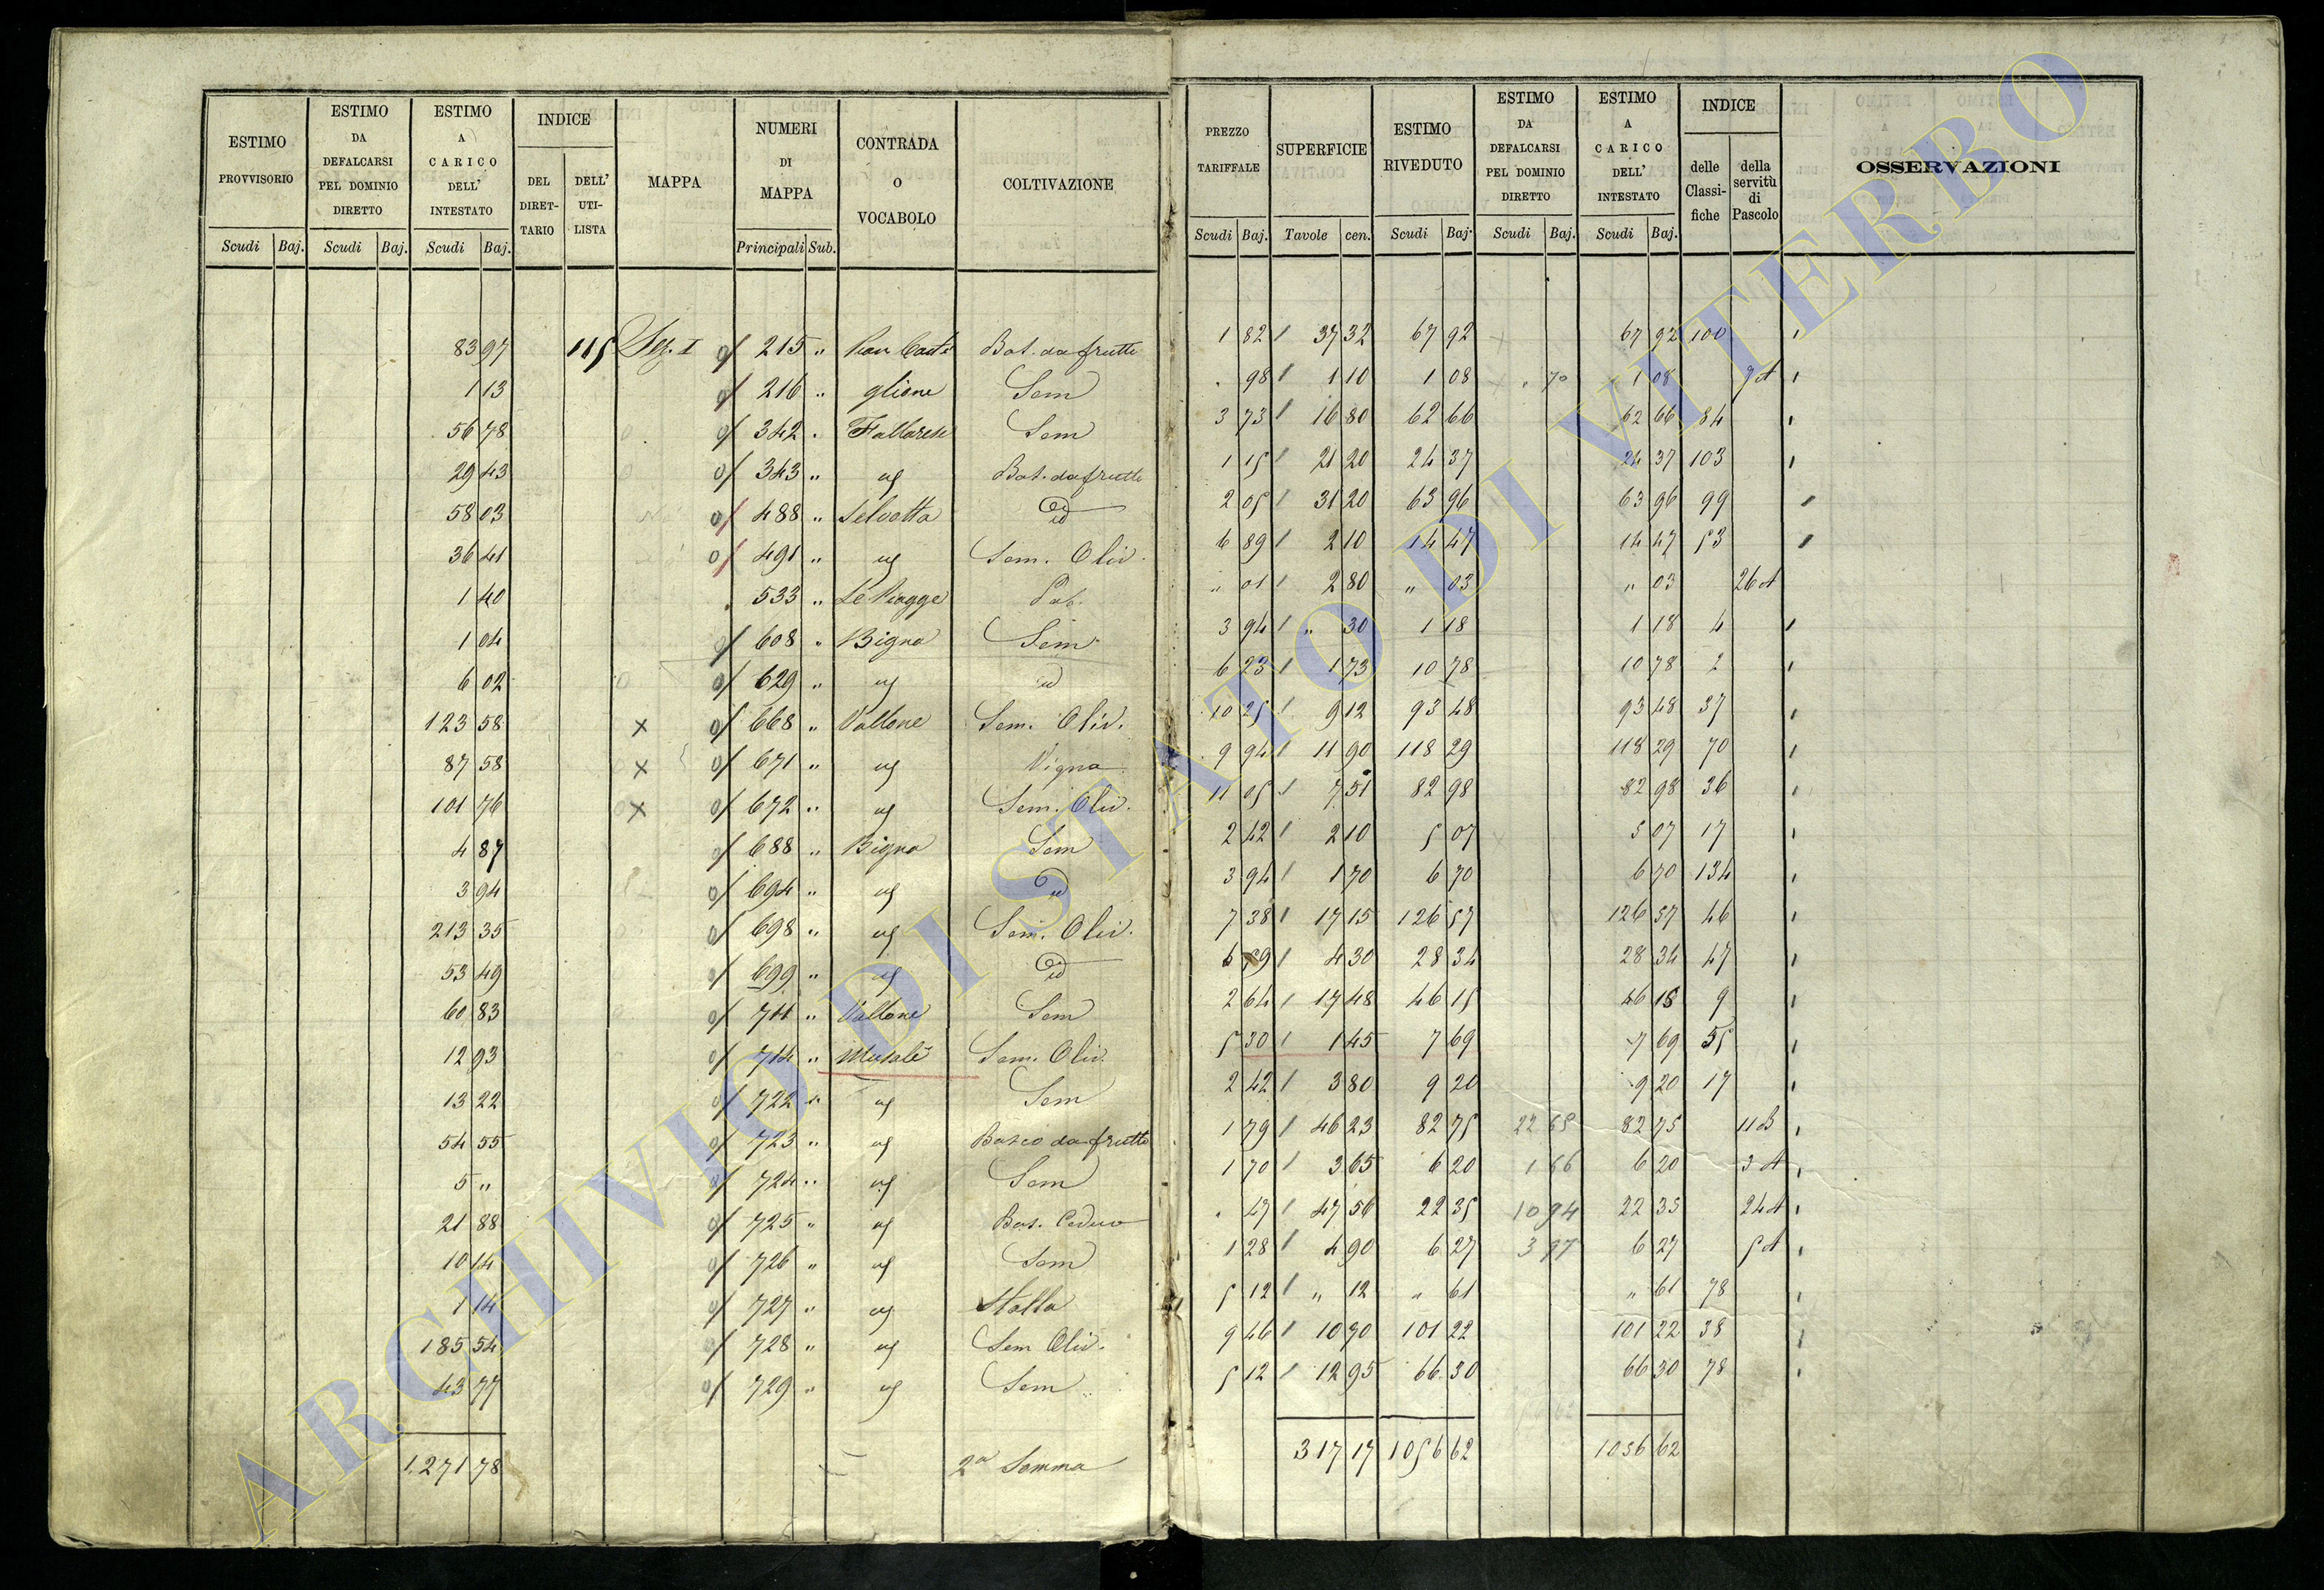 ESTIMO PROVVISORIO | ESTIMO DA DEFALCARSI PEL DOMINIO DIRETTO | ESTIMO A CARICO DELL' INTESTATO | INDICE | MAPPA | NUMERI DI MAPPA | CONTRADA O VOCABOLO | COLTIVAZIONE | PREZZO TARIFFALE | SUPERFICIE | ESTIMO RIVEDUTO | ESTIMO DA DEFALCARSI PEL DOMINIO DIRETTO | ESTIMO A CARICO DELL' INTESTATO | INDICE | OSSERVAZIONI
DEL DIRETTARIO | DELL' UTILISTA | delle Classifiche | della servitù di Pascolo
Scudi | Baj. | Scudi | Baj. | Scudi | Baj. | Principali | Sub. | Scudi | Baj. | Tavole | cen. | Scudi | Baj. | Scudi | Baj. | Scudi | Baj.
83 97 | 115 | Sez. I | 215 " | Pian Casti | Bos. da frutto | 1 82 | 37 32 | 67 92 | 67 92 | 100
1 13 | 216 " | glione | Sem | . 98 | 1 10 | 1 08 | . 70 | 1 08 | 9 A
56 78 | 342 | Fallarese | Sem | 3 73 | 16 80 | 62 66 | 62 66 | 84
29 43 | 343 " | Bos. da frutto | 1 15 | 21 20 | 24 37 | 24 37 | 103
58 03 | 488 " | Selvotta | id | 2 05 | 31 20 | 63 96 | 63 96 | 99
36 41 | 491 " | Sem. Oliv. | 6 89 | 2 10 | 14 47 | 14 47 | 53
1 40 | 533 " | Le Piagge | " 01 | 2 80 | " 03 | " 03 | 26 A
1 04 | 608 " | Bigna | Sem | 3 94 | " 30 | 1 18 | 1 18 | 4
6 02 | 629 " | id | 6 23 | 1 73 | 10 78 | 10 78 | 2
123 58 | x | 668 " | Vallone | Sem. Oliv. | 10 25 | 9 12 | 93 48 | 93 48 | 37
87 58 | x | 671 " | Vigna | 9 94 | 11 90 | 118 29 | 118 29 | 70
101 76 | x | 672 " | Sem. Oliv. | 11 05 | 7 51 | 82 98 | 82 98 | 36
4 87 | 688 " | Bigna | Sem | 2 42 | 2 10 | 5 07 | 5 07 | 17
3 94 | 694 " | id | 3 94 | 1 70 | 6 70 | 6 70 | 134
213 35 | 698 " | Sem. Oliv. | 7 38 | 17 15 | 126 57 | 126 57 | 46
53 49 | 699 " | id | 4 30 | 28 34 | 28 34 | 47
60 83 | 711 " | Vallone | Sem | 2 64 | 17 48 | 46 15 | 46 15 | 9
12 93 | 714 " | Musale | Sem. Oliv. | 5 30 | 1 45 | 7 69 | 7 69 | 55
13 22 | 722 " | Sem | 2 42 | 3 80 | 9 20 | 9 20 | 17
54 55 | 723 " | Bosco da frutto | 1 79 | 46 23 | 82 75 | 82 75 | 11 B
5 " | 724 " | Sem | 1 70 | 3 65 | 6 20 | 6 20 | 3 A
21 88 | 725 " | Bos. Ceduo | . 47 | 47 56 | 22 35 | 10 94 | 22 35 | 24 A
10 14 | 726 " | Sem | 1 28 | 4 90 | 6 27 | 3 97 | 6 27 | 5 A
1 14 | 727 " | Stalla | 5 12 | " 12 | " 61 | " 61 | 78
185 54 | 728 " | Sem Oliv. | 9 46 | 10 70 | 101 22 | 101 22 | 38
43 77 | 729 " | Sem | 5 12 | 12 95 | 66 30 | 66 30 | 78
1.271 78 | 2a Somma | 317 17 | 1056 62 | 1056 62
ARCHIVIO DI STATO DI VITERBO